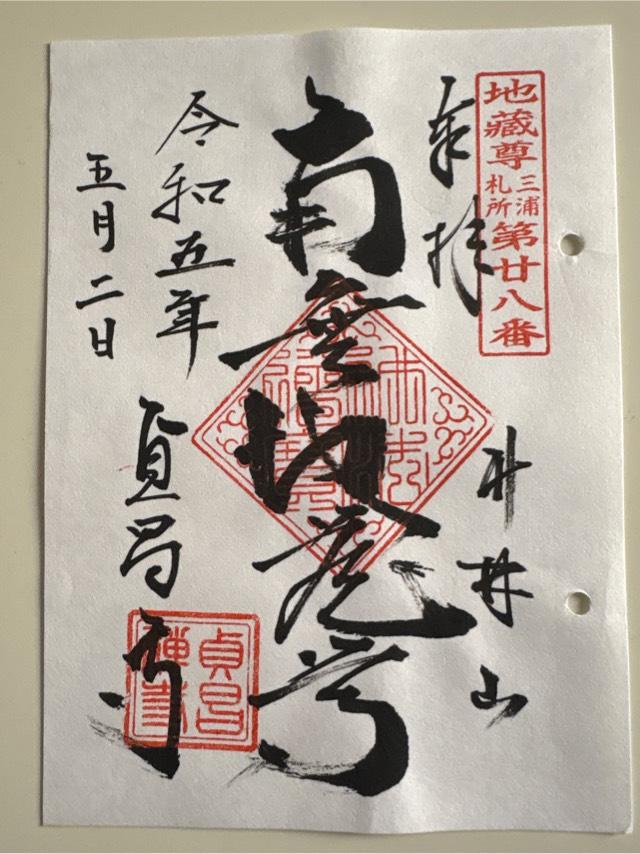 地藏尊
三浦
札所
第廿八番
奉拝
林山
南無地蔵尊
令和五年
五月二日
貞昌寺
貞昌
禅寺